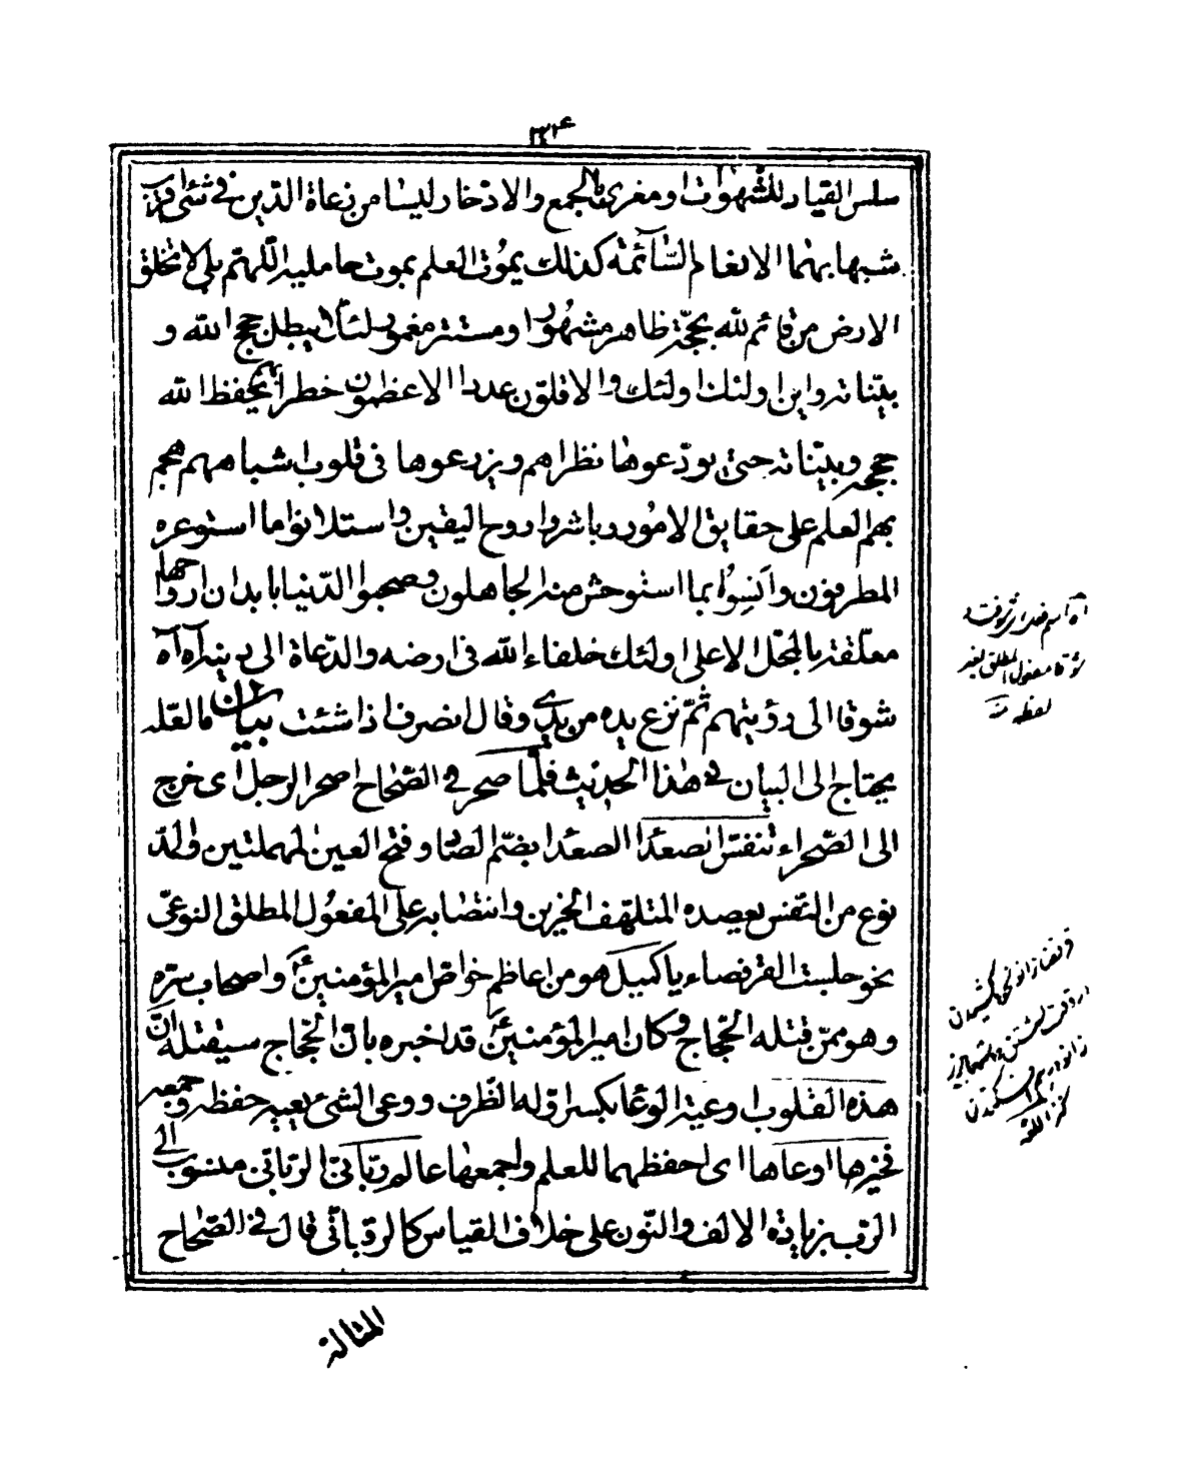 سلس القياد للشهوات او مغرى بالجمع والادّخار ليسا من رعاة الدّين فى شئ اقرب
شبها بهما الانعام السّائمة كذلك يموت العلم بموت حامليه اللّهمّ بلى لا تخلو
الارض من قائم للّه بحجّة ظاهر مشهور او مستتر مغمور لئلا يبطل حجج اللّه و
بيّناته واين اولئك اولئك والاقلّون عددا الاعظمون خطرا بهم يحفظ اللّه
حججه وبيّناته حتى يودعوها نظراهم ويزرعوها فى قلوب اشباههم هجم
بهم العلم على حقايق الامور وباشروا روح اليقين واستلانوا ما استوعره
المطرفون وانسوا بما استوحش منه الجاهلون وصحبوا الدّنيا بابدان ارواحها
معلّقة بالمحلّ الاعلى اولئك خلفاء اللّه فى ارضه والدّعاة الى دينه آه آه
شوقا الى رؤيتهم ثمّ نزع يده من يدى وقال انصرف اذا شئت بيان ما لعلّه
يحتاج الى البيان فى هذا الحديث فلمّا صحر فى الصّحاح اصحر الرجل اى خرج
الى الصّحراء تنفّس الصعدا الصعدا بضمّ الصاد وفتح العين المهملتين والمدّ
نوع من التنفس يصعده المتلهّف الحزين وانتصابه على المفعول المطلق النوعىّ
نحو جلست القرفصاء يا كميل هو من اعاظم خواصّ امير المؤمنين ع واصحاب سرّه
وهو ممّن قتله الحجّاج وكان امير المؤمنين ع قد اخبره بانّ الحجّاج سيقتله انّ
هذه القلوب اوعية الوعا بكسر اوّله الظّرف ووعى الشئ يعيه حفظه وجمعه
فخيرها اوعاها اى احفظها للعلم واجمعها عالم ربّانىّ الربّانى منسوب الى
الربّ بزيادة الالف والنّون على خلاف القياس كالرقبانى قال فى الصّحاح
المثالة
شوقا مفعول المطلق لغير
لفظه منه
كنز اللغة